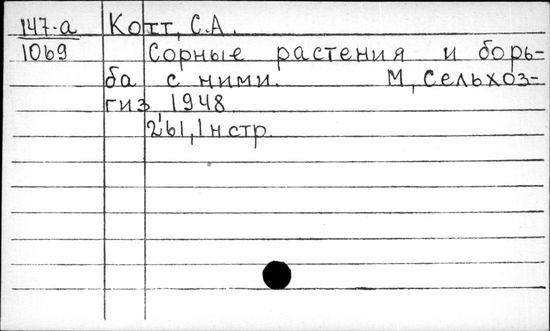 147-а Котт, С.А.
1069 Сорные растения и борь-
ба с ними. М, Сельхоз-
гиз 1948
261, 1 нстр.